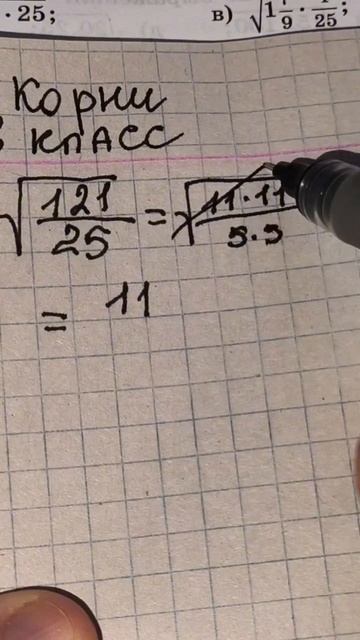 · 25; в) √1 1/9 · 1/25;
Корни
КЛАСС
√121/25 = √11·11/5·5
= 11